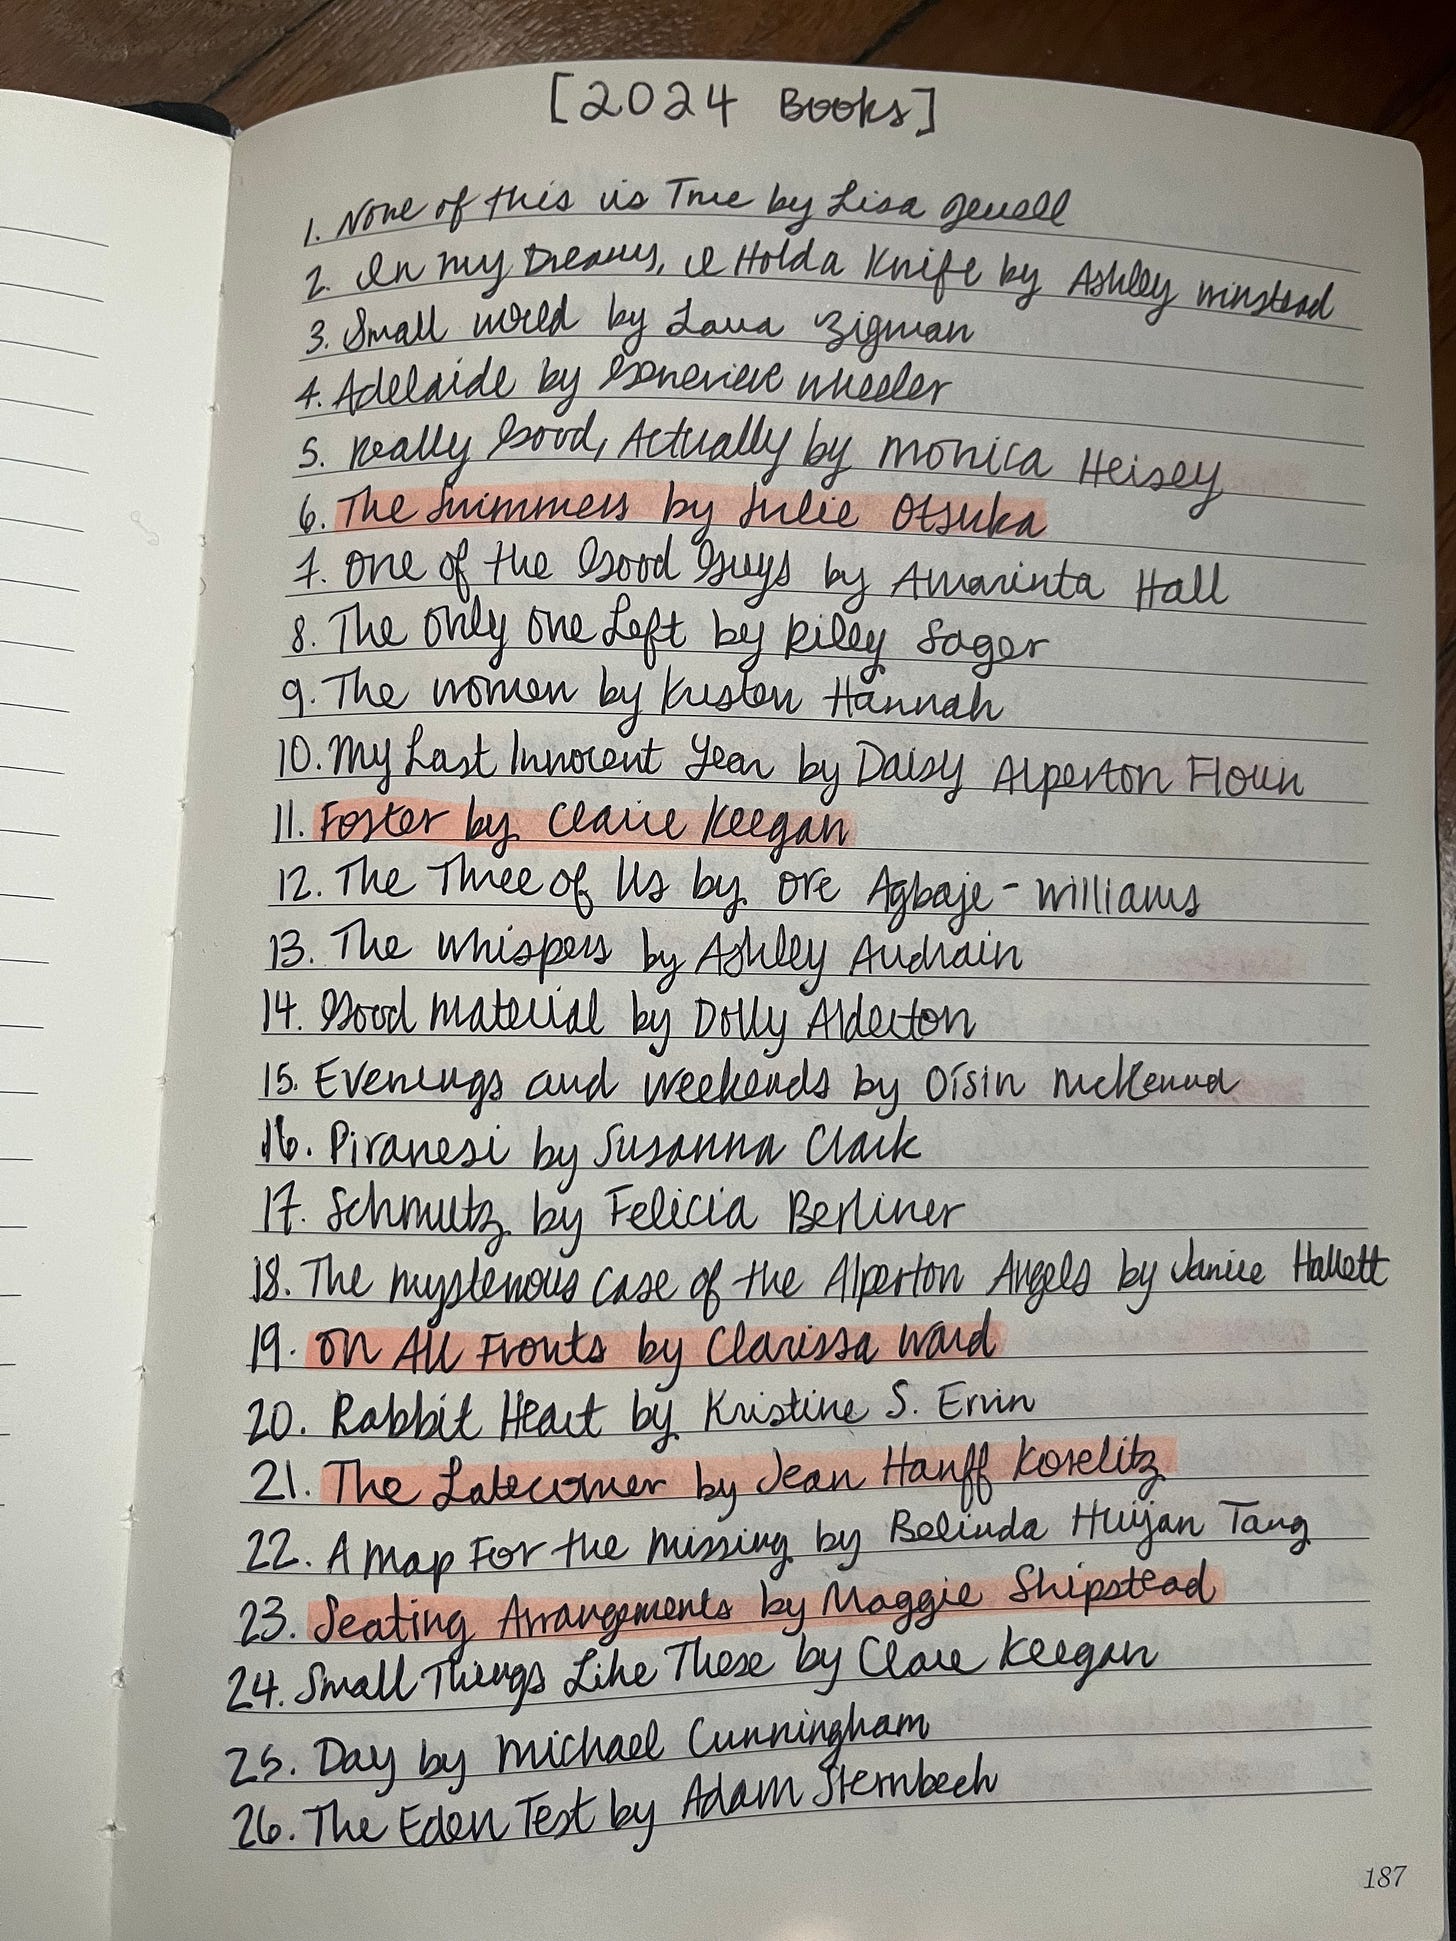 [2024 Books]
1. None of this is True by Lisa Jewell
2. In my Dreams, I Hold a Knife by Ashley winstead
3. Small world by Laura Zigman
4. Adelaide by Genevieve wheeler
5. Really Good, Actually by Monica Heisey
6. The Swimmers by Julie Otsuka
7. One of the Good Guys by Amarinta Hall
8. The Only One Left by Riley Sager
9. The women by Kristen Hannah
10. My Last Innocent Year by Daisy Alperton Florin
11. Foster by Claire Keegan
12. The Three of Us by Ore Agbaje-Williams
13. The Whispers by Ashley Audrain
14. Good Material by Dolly Alderton
15. Evenings and Weekends by Oisín McKenna
16. Piranesi by Susanna Clark
17. Schmutz by Felicia Berliner
18. The Mysterious Case of the Alperton Angels by Janice Hallett
19. On All Fronts by Clarissa Ward
20. Rabbit Heart by Kristine S. Ervin
21. The Latecomer by Jean Hanff Korelitz
22. A Map For the Missing by Belinda Huijan Tang
23. Seating Arrangements by Maggie Shipstead
24. Small Things Like These by Clare Keegan
25. Day by Michael Cunningham
26. The Eden Test by Adam Sternbech
187